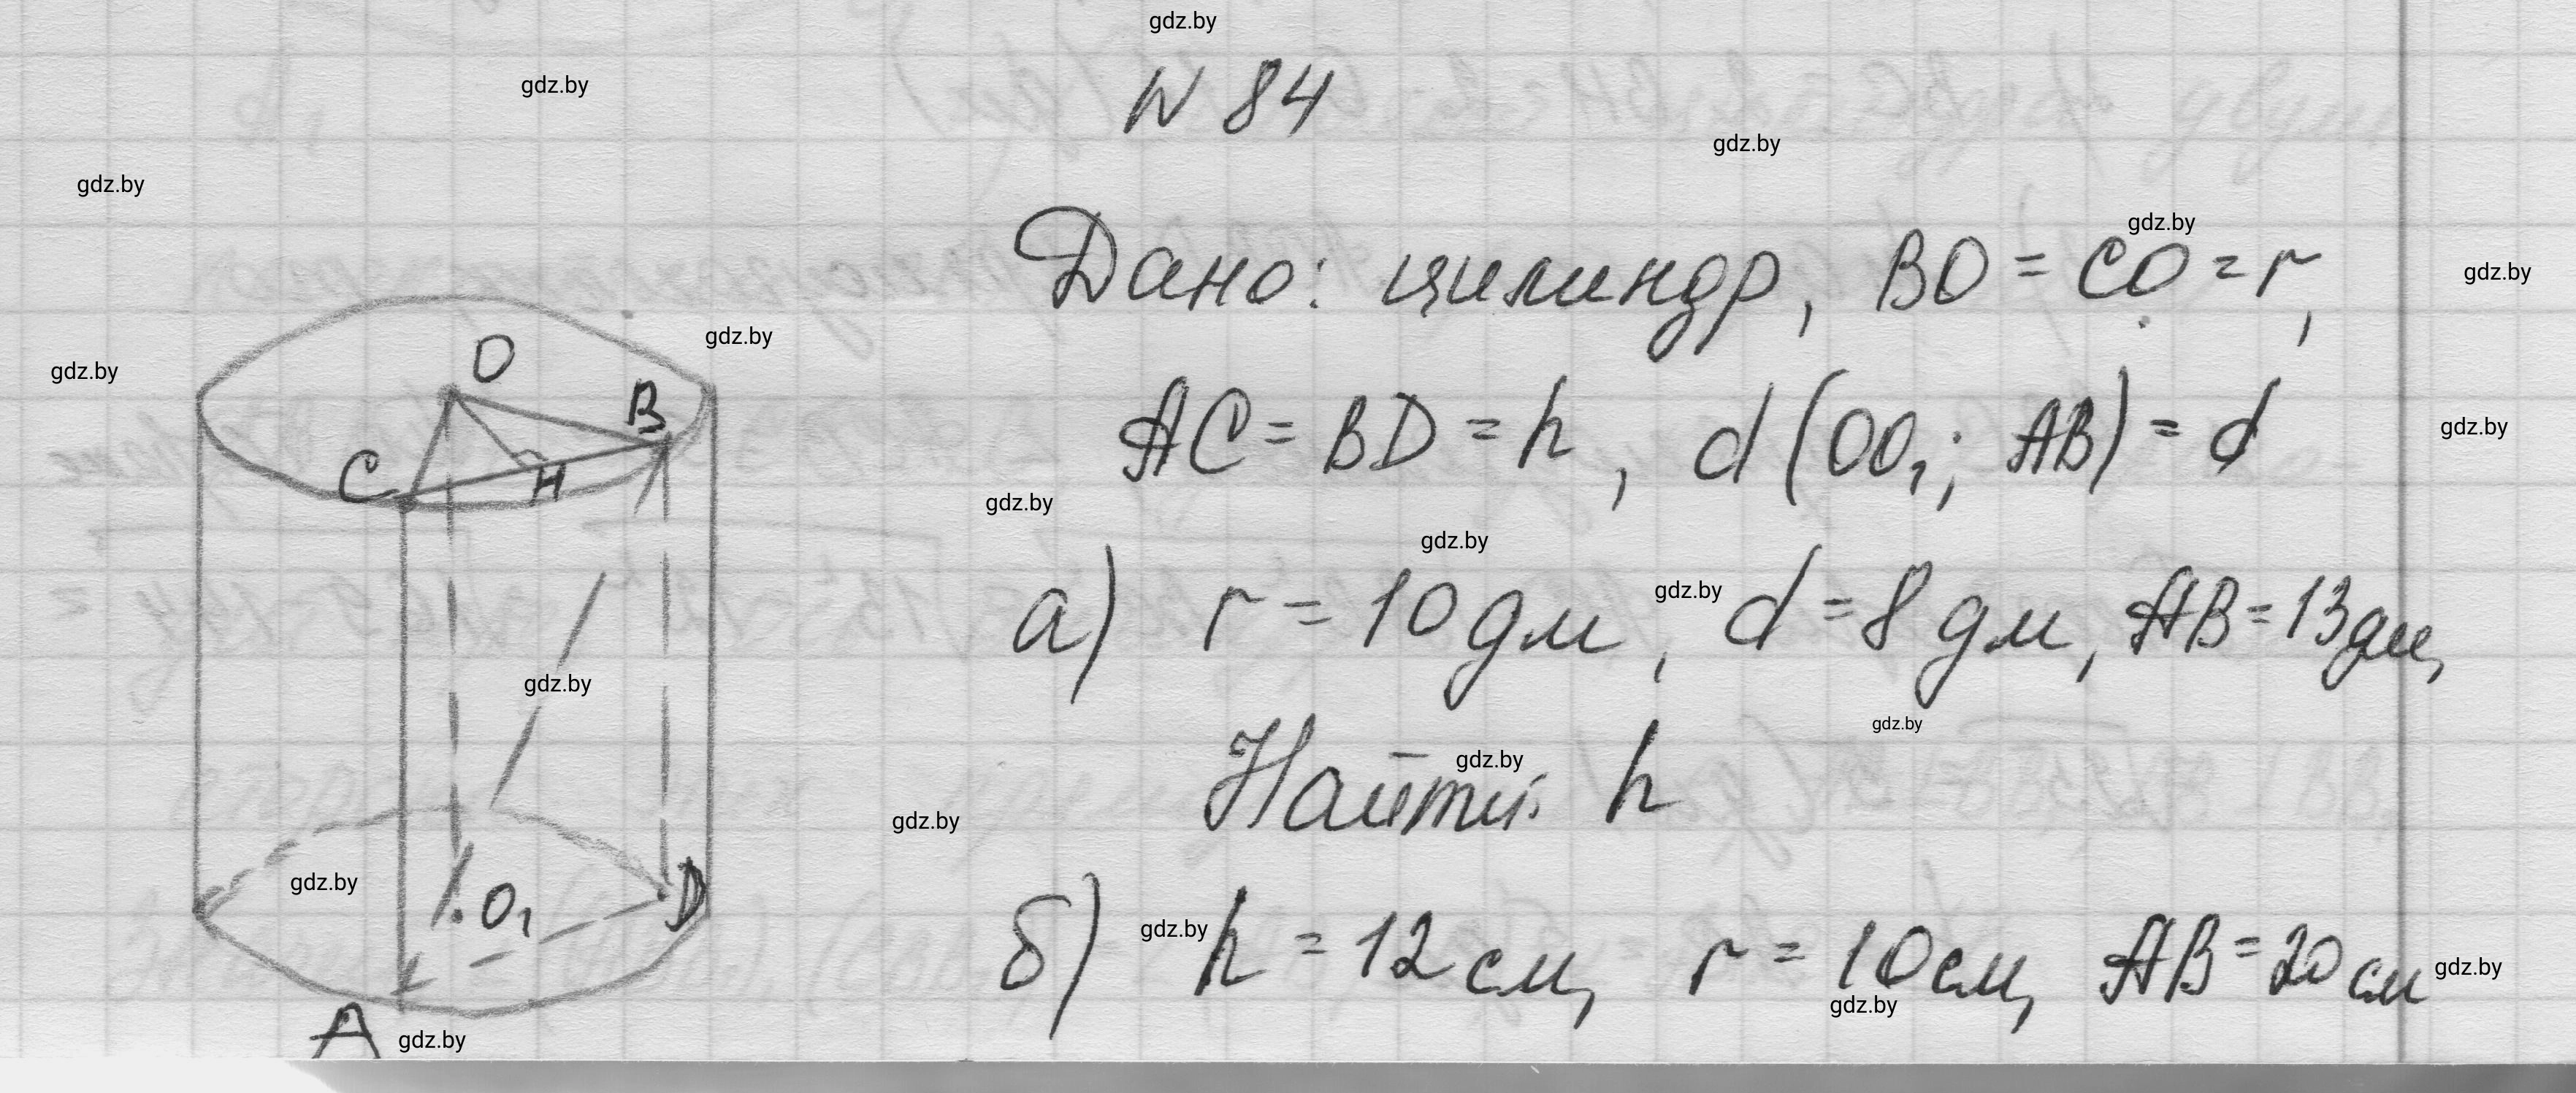 gdz.by
N 84
gdz.by
gdz.by
gdz.by
Дано: цилиндр, BO = CO = r,
gdz.by
gdz.by
gdz.by
gdz.by
O
B
C
H
AC = BD = h, d(OO₁; AB) = d
gdz.by
gdz.by
gdz.by
gdz.by
а) r = 10 дм, d = 8 дм, AB = 13 дм,
gdz.by
gdz.by
Найти: h
gdz.by
gdz.by
gdz.by
O₁
D
б) h = 12 см, r = 10 см, AB = 20 см
gdz.by
gdz.by
gdz.by
A
gdz.by